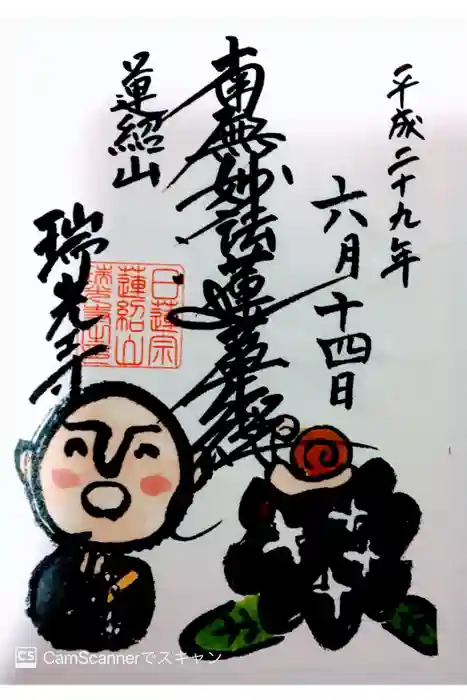 平成二十九年
六月十四日
南無妙法蓮華経
蓮紹山
瑞光寺
日蓮宗
蓮紹山
瑞光寺
CS CamScannerでスキャン